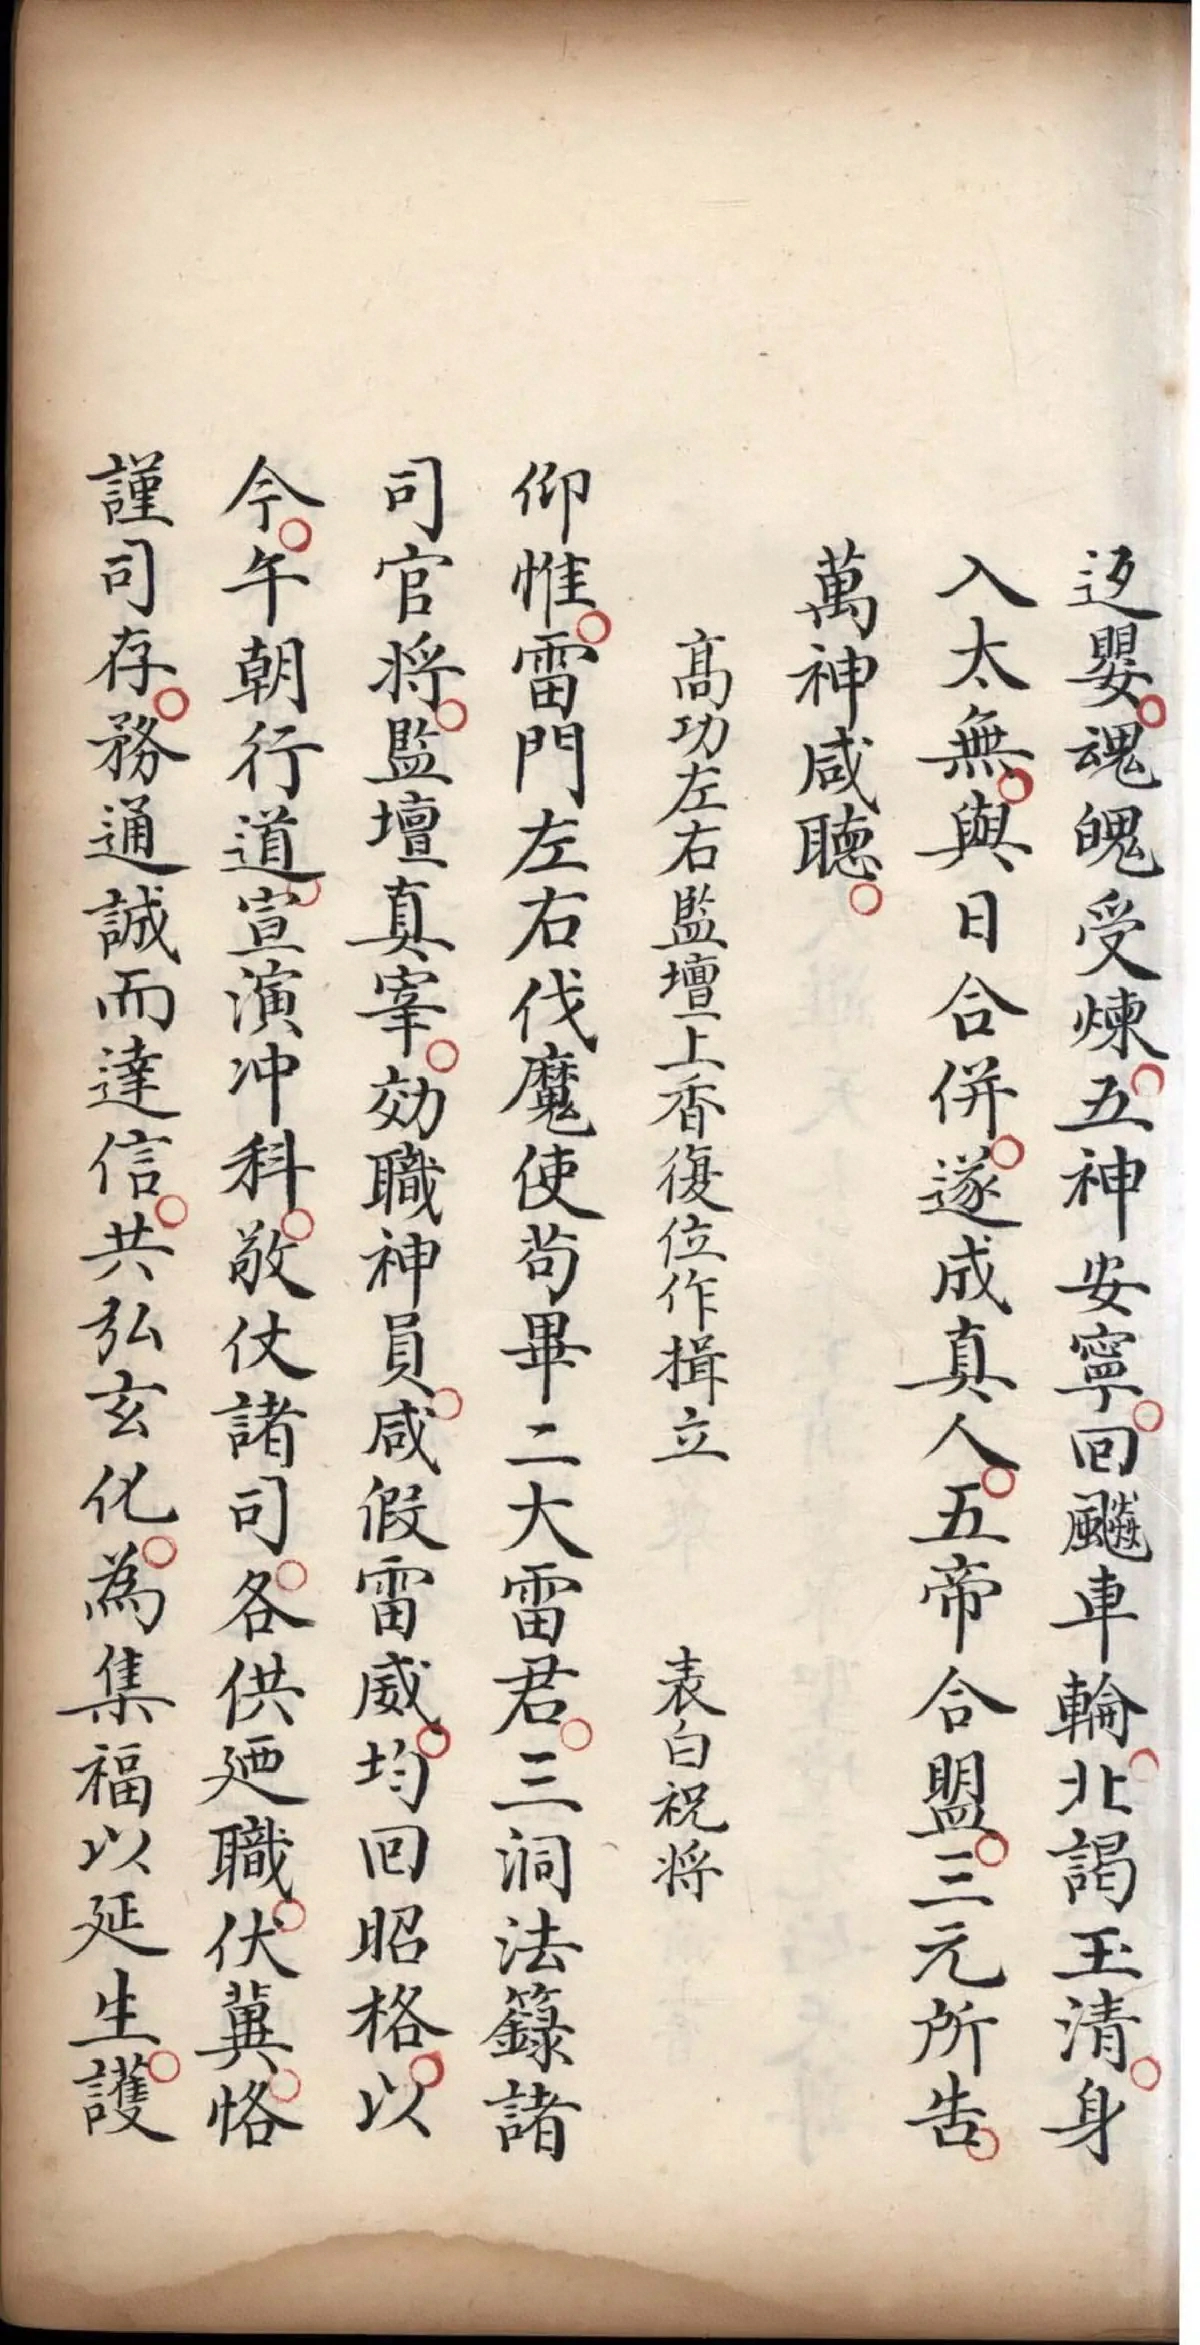 返嬰魂魄受煉五神安寧回飈車輪北謁玉清身
入太無與日合併遂成真人五帝合盟三元所告
萬神咸聽
高功左右監壇上香復位作揖立　表白祝將
仰惟雷門左右伐魔使苟畢二大雷君三洞法籙諸
司官將監壇真宰効職神員咸假雷威均回昭格以
今午朝行道宣演冲科敬仗諸司各供廼職伏冀恪
謹司存務通誠而達信共弘玄化為集福以延生護